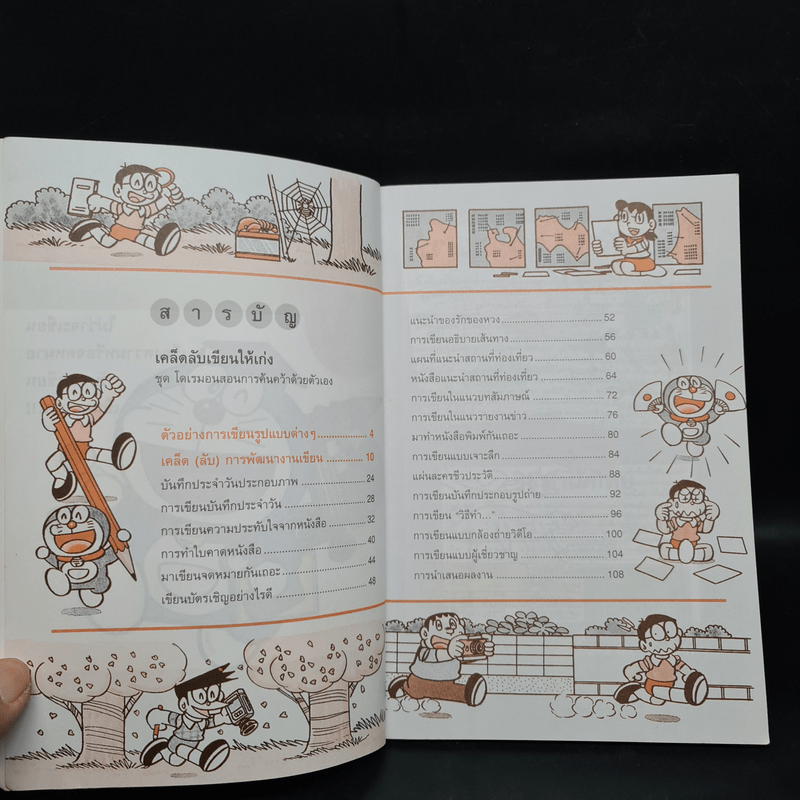 สารบัญ
เคล็ดลับเขียนให้เก่ง
ชุด โดเรมอนสอนการค้นคว้าด้วยตัวเอง
ตัวอย่างการเขียนรูปแบบต่างๆ.................. 4
เคล็ด (ลับ) การพัฒนางานเขียน ............. 10
บันทึกประจำวันประกอบภาพ ................... 24
การเขียนบันทึกประจำวัน ........................ 28
การเขียนความประทับใจจากหนังสือ ........ 32
การทำใบคาดหนังสือ ............................. 40
มาเขียนจดหมายกันเถอะ ........................ 44
เขียนบัตรเชิญอย่างไรดี .......................... 48
แนะนำของรักของหวง ............................ 52
การเขียนอธิบายเส้นทาง ......................... 56
แผนที่แนะนำสถานที่ท่องเที่ยว ................. 60
หนังสือแนะนำสถานที่ท่องเที่ยว ............... 64
การเขียนในแนวบทสัมภาษณ์ .................. 72
การเขียนในแนวรายงานข่าว .................... 76
มาทำหนังสือพิมพ์กันเถอะ ...................... 80
การเขียนแบบเจาะลึก ............................. 84
แผ่นละครชีวประวัติ ............................... 88
การเขียนบันทึกประกอบรูปถ่าย ............... 92
การเขียน "วิธีทำ..." ............................... 96
การเขียนแบบกล้องถ่ายวิดีโอ .................. 100
การเขียนแบบผู้เชี่ยวชาญ ........................ 104
การนำเสนอผลงาน ................................ 108